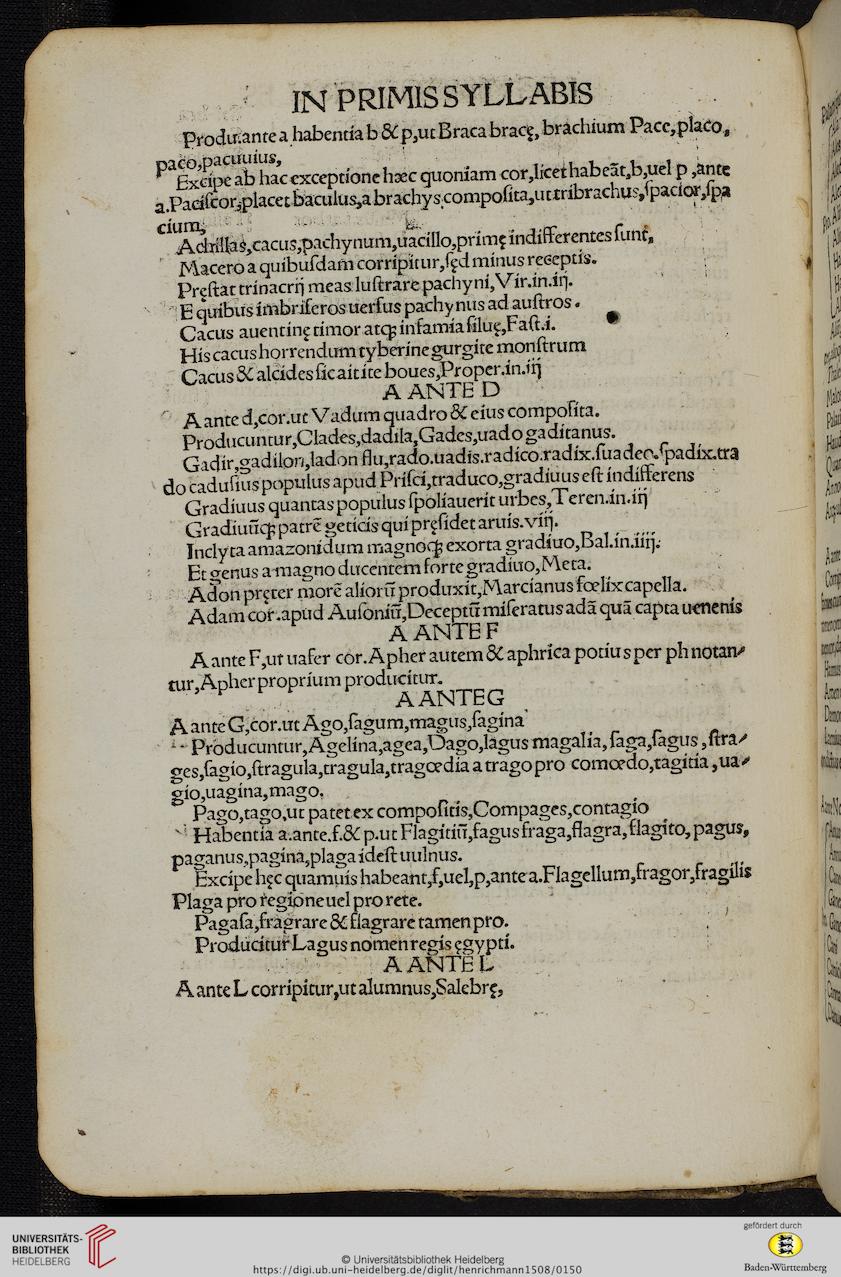 IN PRIMIS SYLLABIS
Produ.ante a habentia b & p,ut Braca bracę, brachium Pace,placo,
paco,pacuuius,
Excipe ab hac exceptione hæc quoniam cor,licet habeãt,b,uel p ,ante
a.Paciſcor,placet baculus,a brachys compoſita,ut tribrachus,ſpacior,ſpa
cium,
Achillas,cacus,pachynum,uacillo,primę indifferentes ſunt,
Macero a quibuſdam corripitur,ſęd minus receptis.
Pręſtat trinacrij meas luſtrare pachyni,Vir.in.iij.
E quibus imbriferos uerſus pachynus ad auſtros.
Cacus auentinę timor atqꝫ infamia ſiluę,Faſt.i.
His cacus horrendum tyberine gurgite monſtrum
Cacus & alcides ſic ait ite boues,Proper.in.iij
A ANTE D
A ante d,cor.ut Vadum quadro & eius compoſita.
Producuntur,Clades,dadila,Gades,uado gaditanus.
Gadir,gadilon,ladon flu,rado.uadis.radico.radix.ſuadeo.ſpadix.tra
do caduſius populus apud Priſci,traduco,gradiuus eſt indifferens
Gradiuus quantas populus ſpoliauerit urbes,Teren.in.iij
Gradiuũqꝫ patrẽ geticis qui pręſidet aruis.viij.
Inclyta amazonidum magnoqꝫ exorta gradiuo,Bal.in.iiij.
Et genus a magno ducentem forte gradiuo,Meta.
Adon pręter morẽ aliorũ produxit,Marcianus fœlix capella.
Adam cor.apud Auſoniũ,Deceptũ miſeratus adã quã capta uenenis
A ANTE F
A ante F,ut uafer cor.Apher autem & aphrica potius per ph notan⸗
tur,Apher proprium producitur.
A ANTE G
A ante G,cor.ut Ago,ſagum,magus,ſagina
Producuntur,Agelina,agea,Dago,lagus magalia, ſaga,ſagus ,ſtra⸗
ges,ſagio,ſtragula,tragula,tragœdia a trago pro comœdo,tagitia ,ua⸗
gio,uagina,mago,
Pago,tago,ut patet ex compoſitis,Compages,contagio
Habentia a.ante.f.& p.ut Flagitiũ,fagus fraga,flagra, flagito, pagus,
paganus,pagina,plaga ideſt uulnus.
Excipe hęc quamuis habeant,f,uel,p,ante a.Flagellum,fragor,fragilis
Plaga pro regione uel pro rete.
Pagaſa,fragrare & flagrare tamen pro.
Producitur Lagus nomen regis ęgypti.
A ANTE L
A ante L corripitur,ut alumnus,Salebrę,
UNIVERSITÄTS-
BIBLIOTHEK
HEIDELBERG
© Universitätsbibliothek Heidelberg
https://digi.ub.uni-heidelberg.de/diglit/henrichmann1508/0150
gefördert durch
Baden-Württemberg